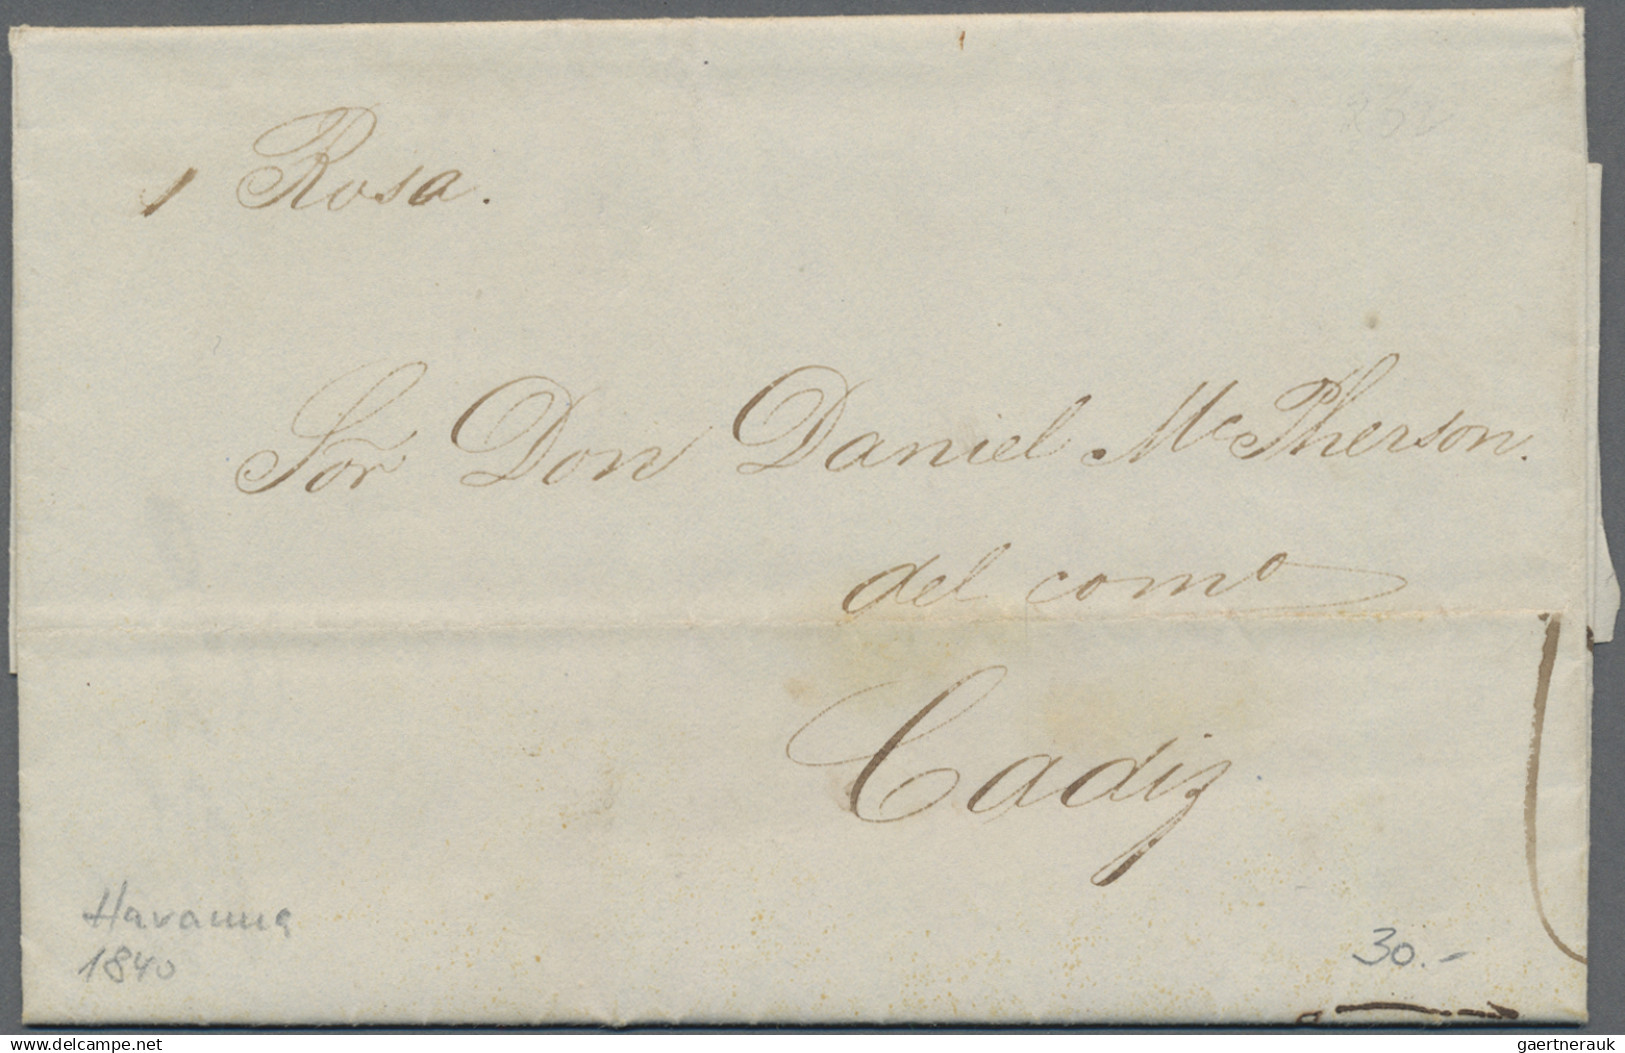 p Rosa.
232
Sor Don Daniel McPherson.
del como
Cadiz
Havanna
1840
30.-
delcampe.net
gaertnerauk